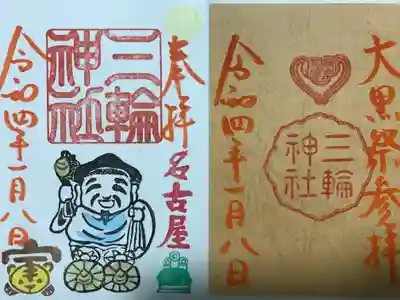 奉拝
名古屋
三輪
神社
令和四年一月八日
大黒祭参拝
三輪
神社
令和四年一月八日